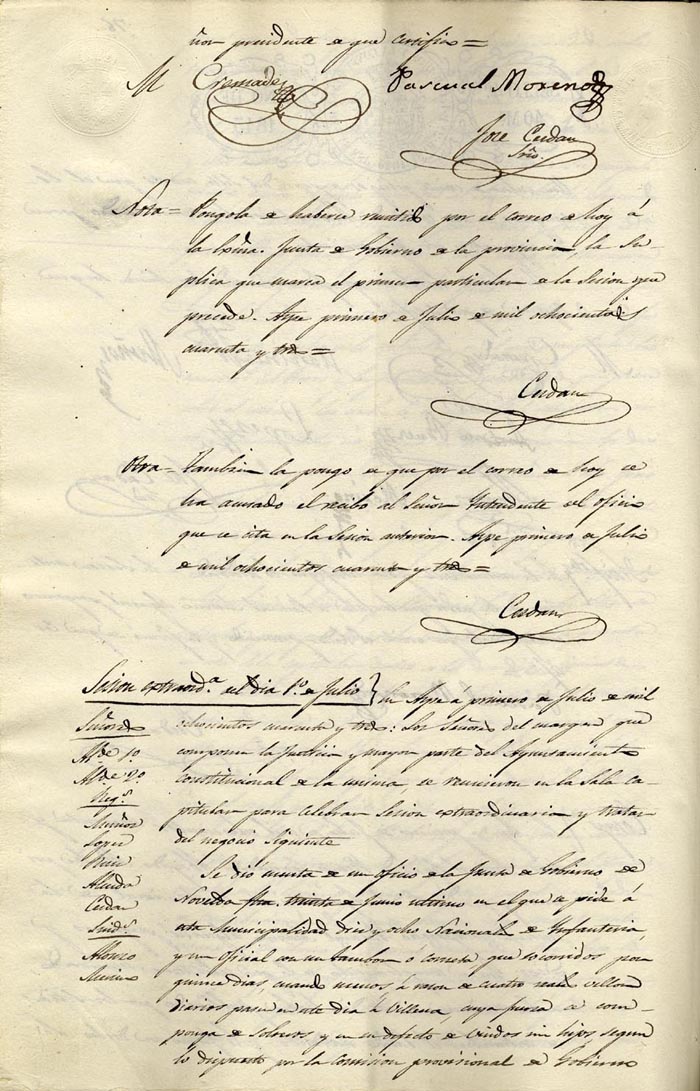 ñor presidente de que certifico=
M Cremades Pascual Moreno
Jose Cerdan
Srio.
Nota= Pongola de haberse remitido por el correo de hoy á
la Exma. Junta de Gobierno de la provincia, la Su-
plica que marca el primer particular de la Sesion que
precede. Aspe primero de Julio de mil ochocientos
cuarenta y tres=
Cerdan
Otra= Tambien la pongo de que por el correo de hoy se
ha acusado el recibo al Señor Yntendente del oficio
que se cita en la Sesion anterior. Aspe primero de Julio
de mil ochocientos cuarenta y tres=
Cerdan
Sesion extraord.ª del dia 1º de Julio} En Aspe á primero de Julio de mil
ochocientos cuarenta y tres: Los Señores del margen que
componen la Justicia y mayor parte del Ayuntamiento
constitucional de la misma, se reunieron en la Sala ca-
pitular para celebrar Sesion extraordinaria y tratar
del negocio siguiente
Señores
Al.de 1º
Al.de 2º
Reg.s
Muñoz
Lopez
Almida
Cerdan
Sind.s
Alonso
Se dió cuenta de un oficio de la Junta de Gobierno de
Novelda fha. treinta de Junio ultimo en el que se pide á
esta Municipalidad diez y ocho Nacionales de Ynfanteria,
y un oficial con un tambor ó corneta que socorridos por
quince dias, cuando menos á razon de cuatro reales vellon
diarios pasen en este dia á Villena cuya fuerza se com-
ponga de solteros y en su defecto de viudos sin hijos segun
lo dispuesto por la Comision provisional de Gobierno